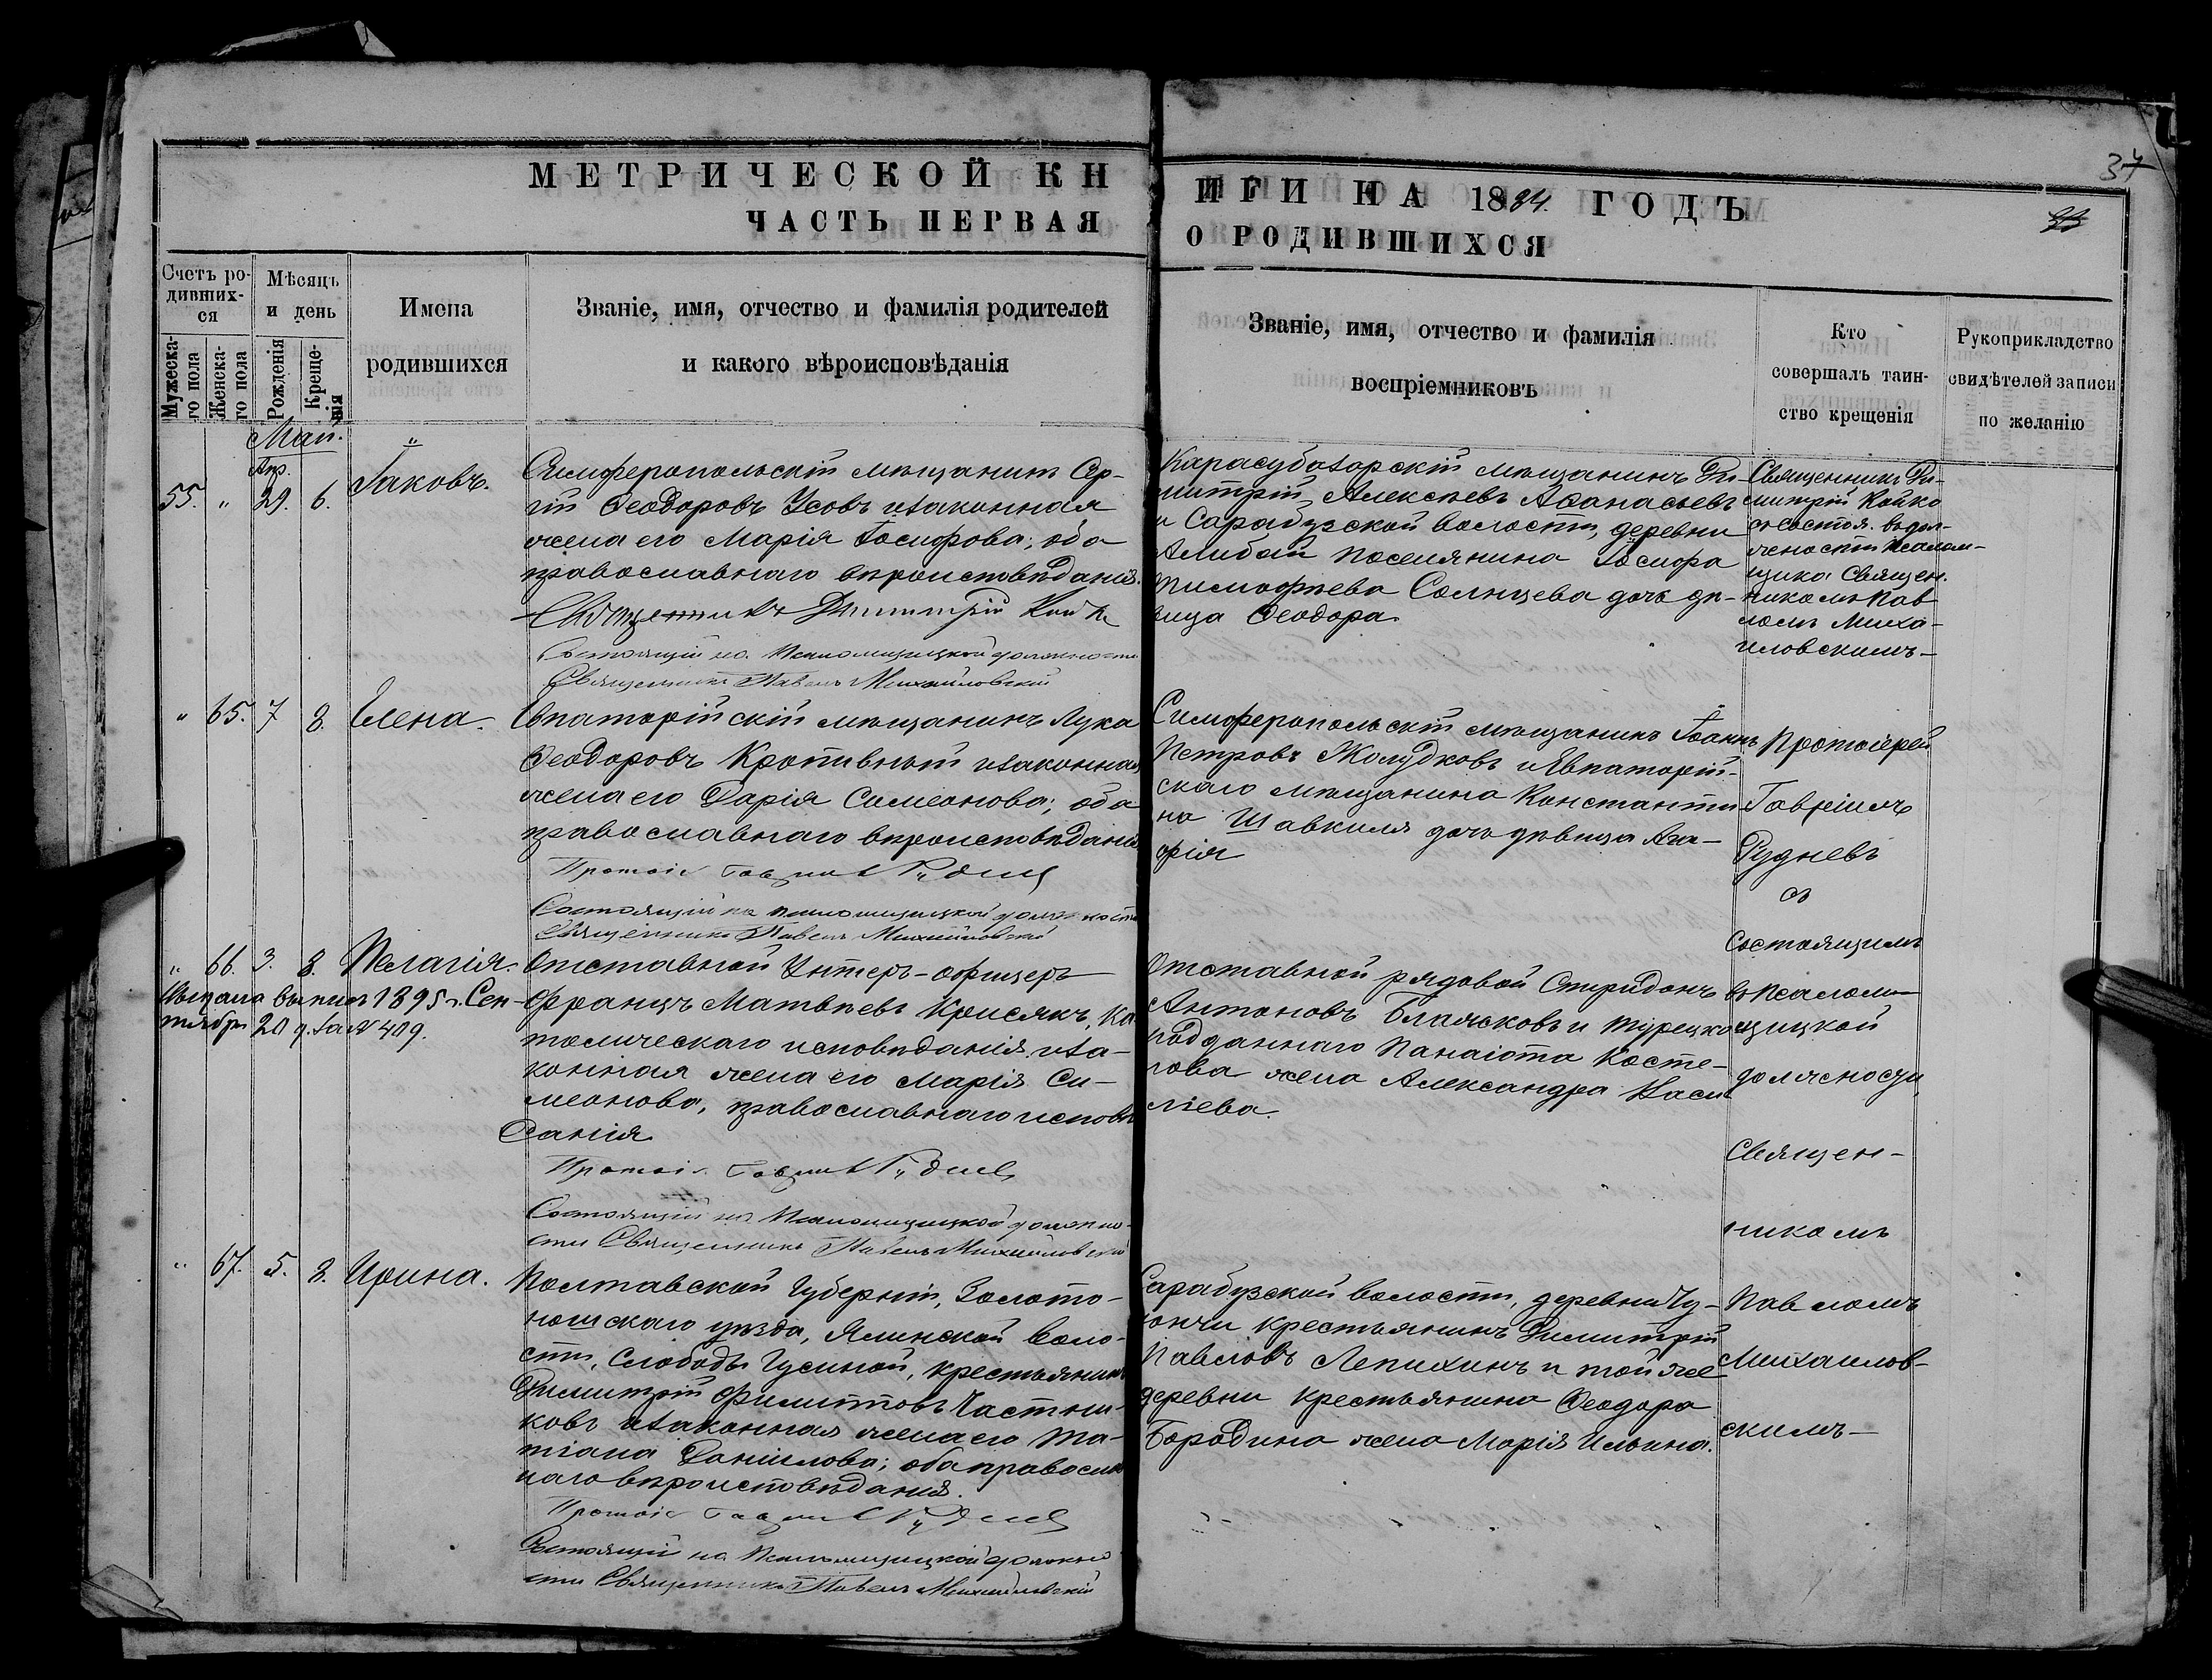 МЕТРИЧЕСКОЙ КН
ЧАСТЬ ПЕРВАЯ
ИГИ НА 1884. ГОДЪ
О РОДИВШИХСЯ
37
Счетъ ро-
дивших-
ся
Мужеска-
го пола
Женска-
го пола
Мѣсяцъ
и день
Рожденія
Креще-
нія
Имена
родившихся
Званіе, имя, отчество и фамилія родителей
и какого вѣроисповѣданія
Званіе, имя, отчество и фамилія
воспріемниковъ
Кто
совершалъ таин-
ство крещенія
Рукоприкладство
свидѣтелей записи
по желанію
Май.
Апр.
55. „ 29. 6. Іаковъ.
Симферопольскій мѣщанинъ Сер-
гій Ѳеодоровъ Усовъ и законная
жена его Марія Іосифова; оба
православнаго вѣроисповѣданія.
Священникъ Димитрій Койко
Состоящій на Псаломщицкой должности
Священникъ Павелъ Михайловскій
Карасубазарскій мѣщанинъ Ди-
митрій Алексѣевъ Аѳанасьевъ
и Сарабузской волости, деревни
Алибай поселянина Іосифа
Тимофѣева Солнцева дочь дѣ-
вица Ѳеодора.
Священникъ Ди-
митрій Койко
съ состоя. въ дол-
жности псалом-
щика Священ-
никомъ Пав
ломъ Миха-
иловскимъ
„ 65. 7 8. Елена.
Евпаторійскій мѣщанинъ Лука
Ѳеодоровъ Кропивный и законная
жена его Дарія Симеонова; оба
православнаго вѣроисповѣданія
Протоі Гавриилъ Рудневъ
Состоящій на псаломщицкой должности
Священникъ Павелъ Михайловскій
Симферопольскій мѣщанинъ Іоаннъ
Петровъ Жолудковъ и Евпаторій-
скаго мѣщанина Константи-
на Шавкиля дочь дѣвица Ага-
фія
Протоіерей
Гавріилъ
Рудневъ
съ
состоящимъ
въ псалом-
щицкой
должности,
Священ-
никомъ
Павломъ
Михаилов-
скимъ
„ 66. 3. 8. Пелагія.
Выдана выпись 1895 г. Сен-
тября 20 д. за № 409.
Отставной Унтеръ-офицеръ
Францъ Матвѣевъ Крисякъ, Ка
толическаго исповѣданія и за-
конная жена его Марія Си-
меонова, православнаго исповѣ
данія
Протоі Гавриилъ Рудневъ
Состоящій на Псаломщицкой должно-
сти Священникъ Павелъ Михайловскій
Отставной рядовой Спиридонъ
Антоновъ Блажковъ и турецко
подданнаго Панаіота Косте-
рова жена Александра Васи
ліева.
„ 67. 5. 8. Ирина.
Полтавской Губерніи, Золото-
ношскаго уѣзда, Ялинской воло-
сти, Слободы Гусиной, крестьянинъ
Димитрій Филипповъ Частни-
ковъ и законная жена его Та-
тіана Даніилова; оба православ
наго вѣроисповѣданія.
Протоі Гавриилъ Рудневъ
Состоящій на Псаломщицкой должно
сти Священникъ Павелъ Михайловскій
Сарабузской волости, деревни Чу-
юнчи крестьянинъ Димитрій
Павловъ Лепихинъ и той же
деревни крестьянина Ѳеодора
Бородина жена Марія Ильина.